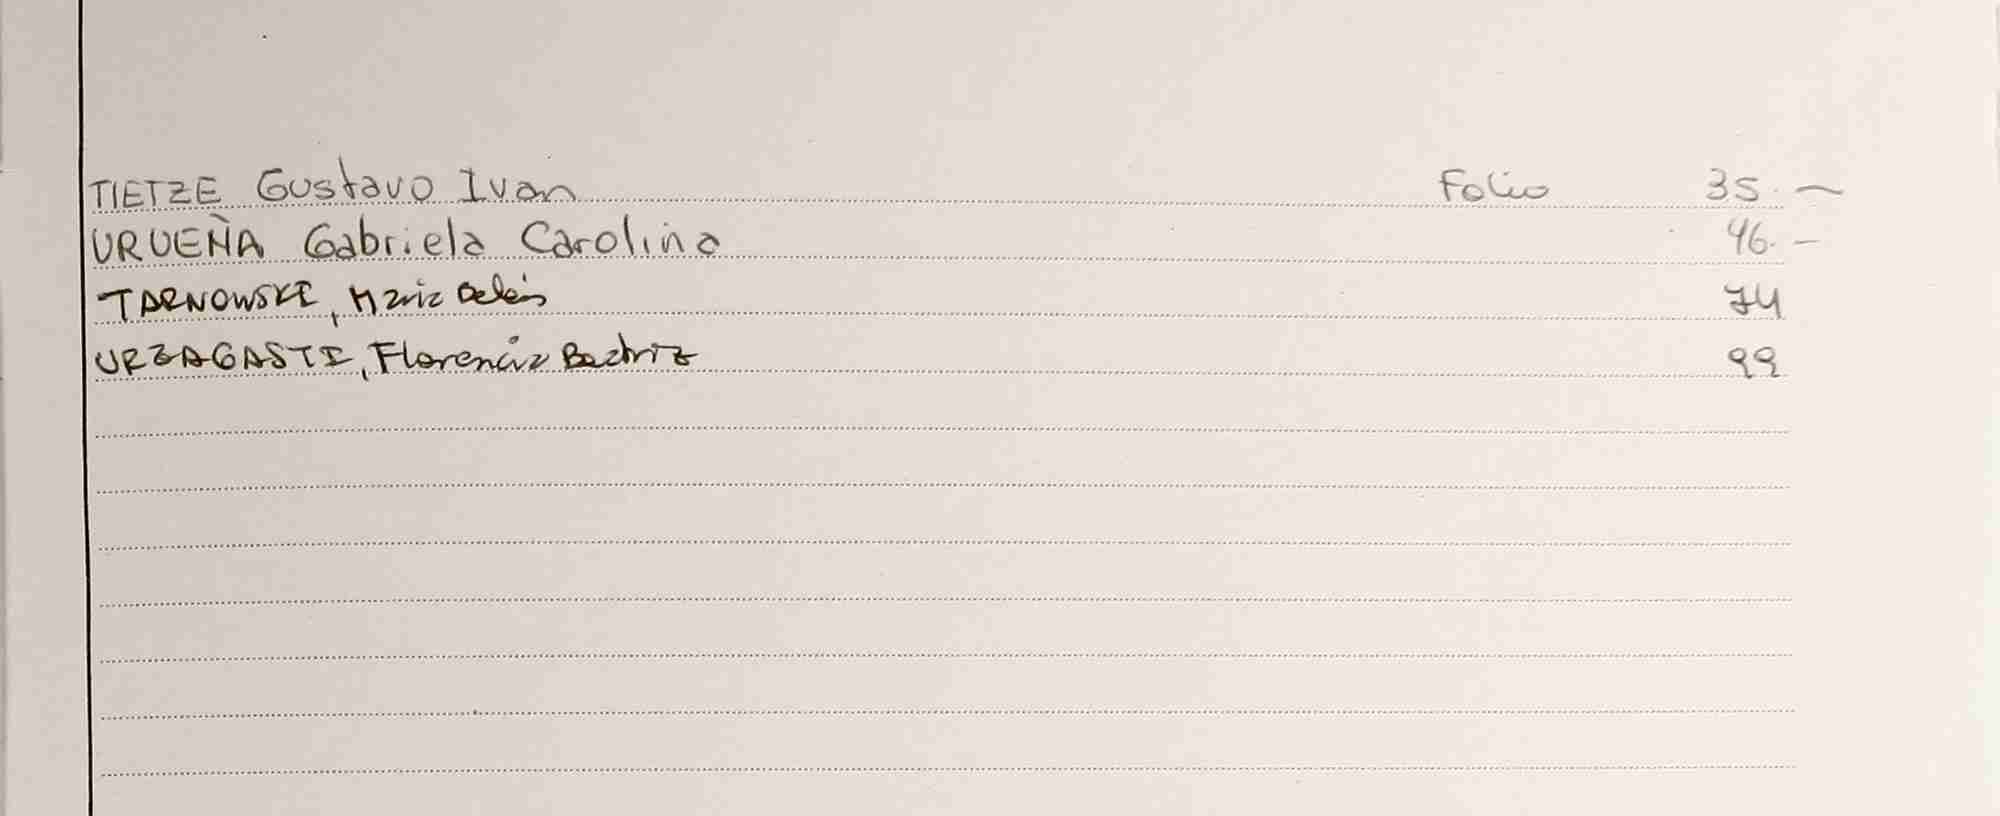 TIETZE Gustavo Ivan Folio 35. —
URUEÑA Gabriela Carolina 46. —
TARNOWSKI, Maria Belén 74
URZAGASTI, Florencia Beatriz 99